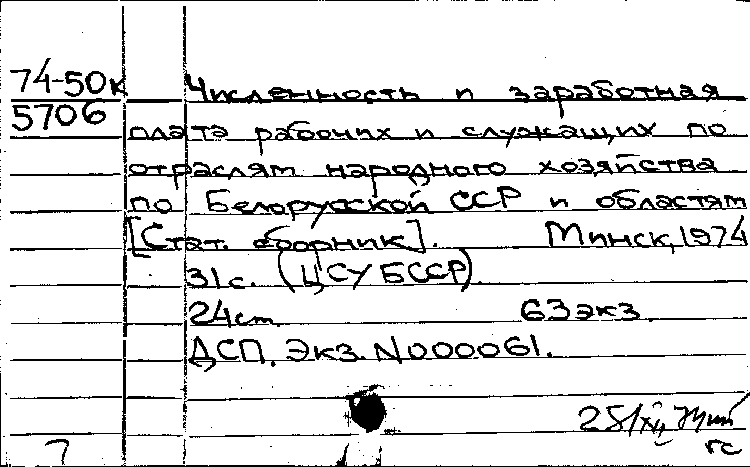 74-50к Численность и заработная
5706 плата рабочих и служащих по
отраслям народного хозяйства
по Белорусской ССР и областям
[Стат. сборник]. Минск, 1974
31с. (ЦСУ БССР).
24см 63экз.
ДСП. Экз. N000061.
25/XII
гс
7